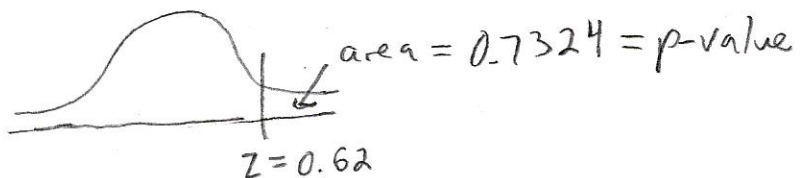 area = 0.7324 = p-value
z = 0.62